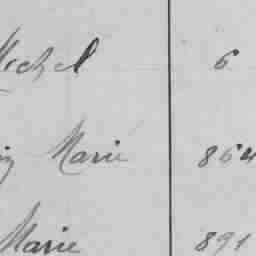 Michel 6
Marie 864
Marie 891